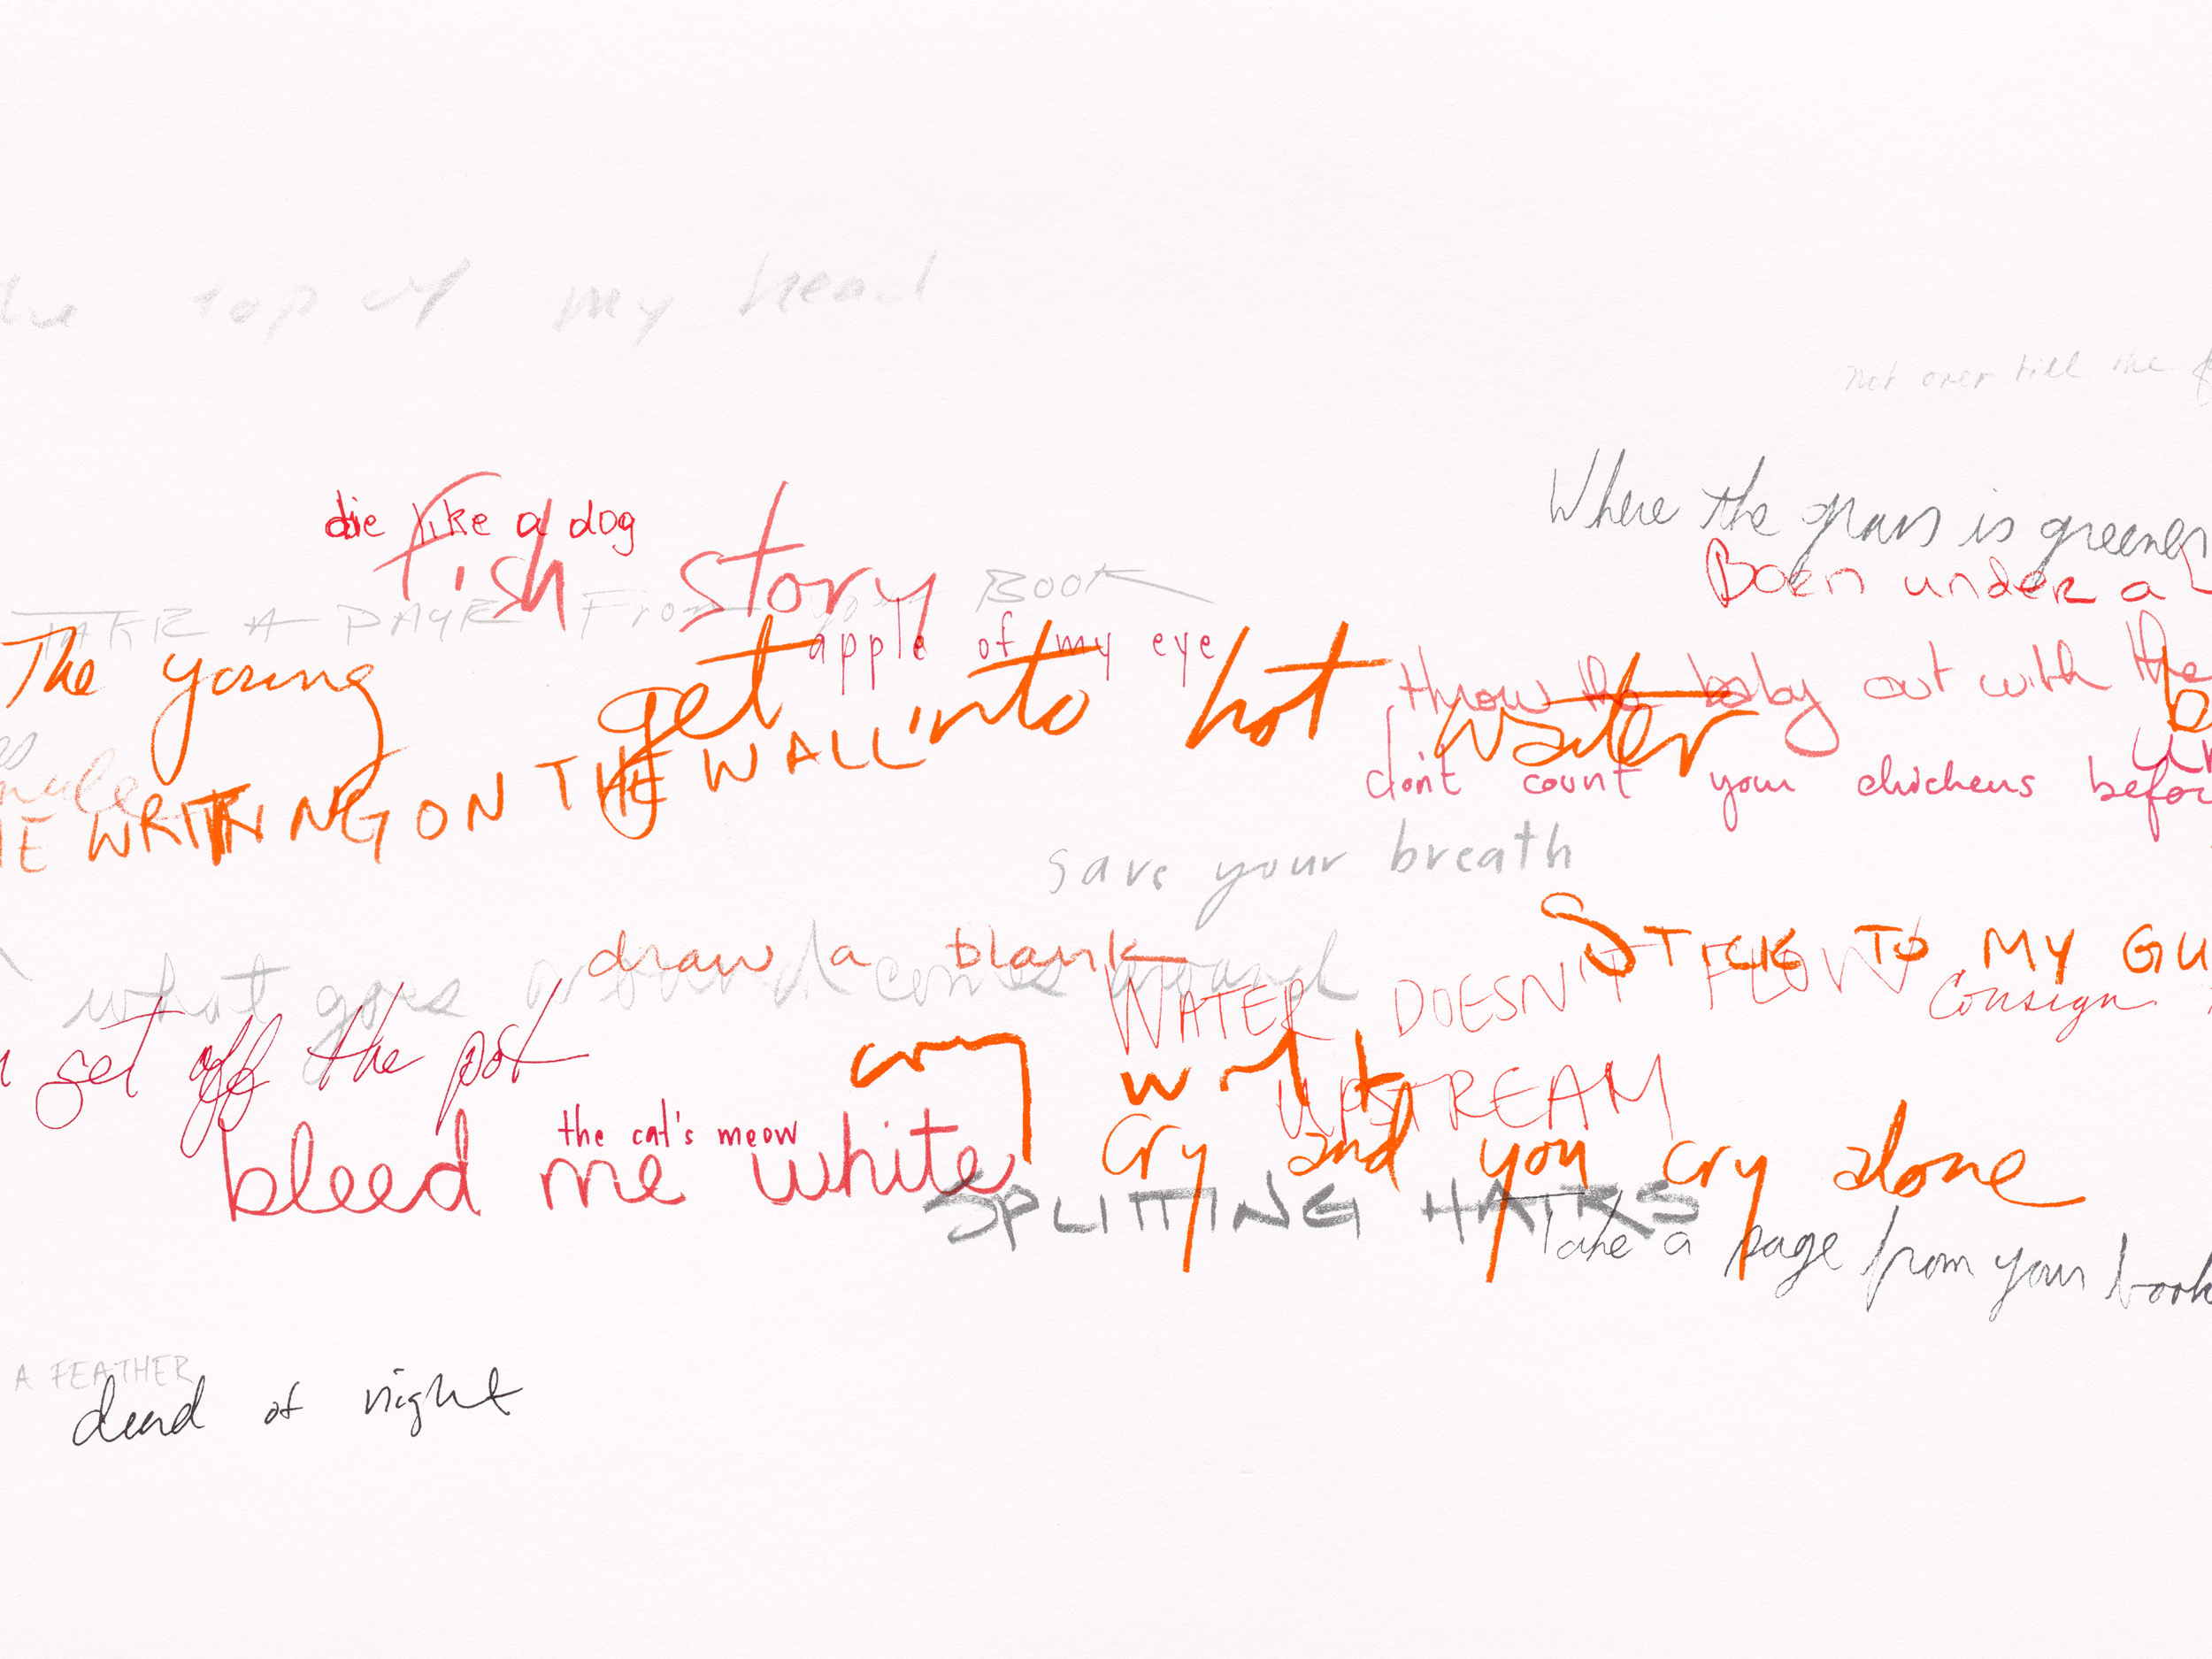 the top of my head
not over till the
Where the grass is greener
die like a dog
fish story
Boen under a
TAKE A PAGE From your BOOK
apple of my eye
The young
get into hot water
throw the baby out with the
THE WRITING ON THE WALL
don't count your chickens before
save your breath
STICK TO MY GU
draw a blank
what goes around comes around
WATER DOESN'T FLOW
UPSTREAM
Consign
get off the pot
cry wolf
the cat's meow
bleed me white
Cry and you cry alone
SPLITTING HAIRS
Take a page from your book
A FEATHER
dead of night